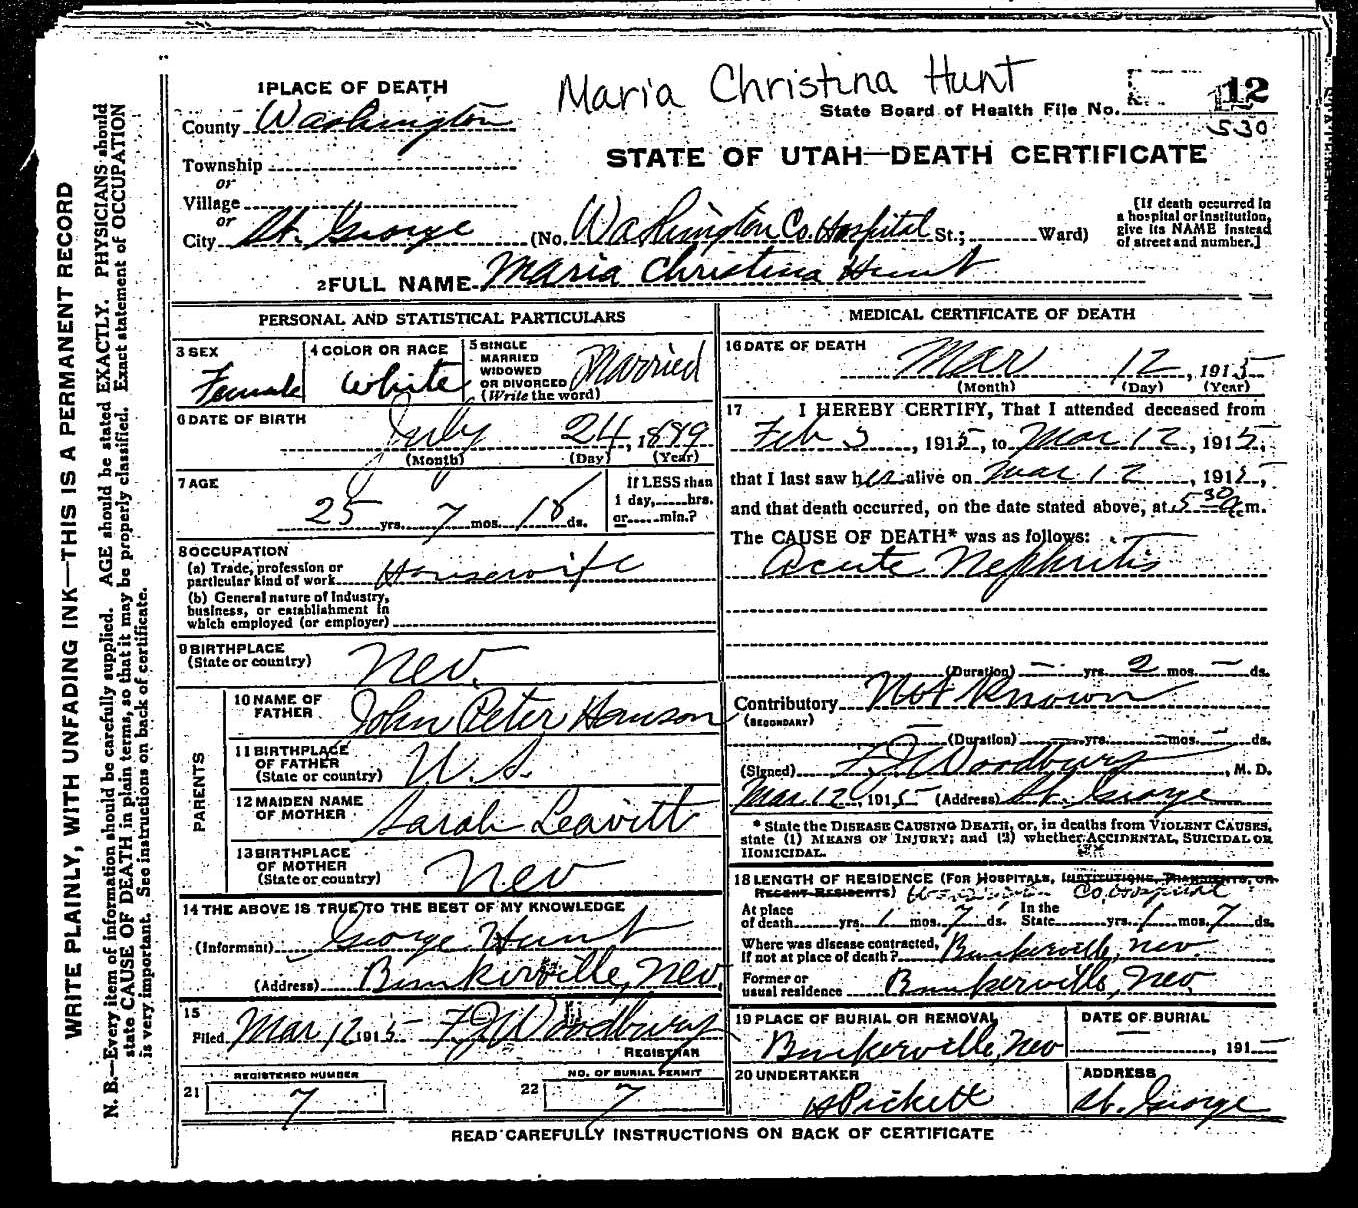 Maria Christina Hunt
12
State Board of Health File No.
530
STATE OF UTAH—DEATH CERTIFICATE
1 PLACE OF DEATH
County Washington
Township
or
Village
or
City St. George (No. Washington Co. Hospital St.; Ward)
[If death occurred in
a hospital or institution,
give its NAME instead
of street and number.]
2 FULL NAME Maria Christina Hunt
PERSONAL AND STATISTICAL PARTICULARS
3 SEX
Female
4 COLOR OR RACE
White
5 SINGLE
MARRIED
WIDOWED
OR DIVORCED
(Write the word)
Married
6 DATE OF BIRTH
July 24, 1889
(Month) (Day) (Year)
7 AGE
25 yrs. 7 mos. 18 ds.
If LESS than
1 day, hrs.
or min.?
8 OCCUPATION
(a) Trade, profession or
particular kind of work Housewife
(b) General nature of Industry,
business, or establishment in
which employed (or employer)
9 BIRTHPLACE
(State or country)
Nev.
PARENTS
10 NAME OF
FATHER
John Peter Hanson
11 BIRTHPLACE
OF FATHER
(State or country)
U.S.
12 MAIDEN NAME
OF MOTHER
Sarah Leavitt
13 BIRTHPLACE
OF MOTHER
(State or country)
Nev
14 THE ABOVE IS TRUE TO THE BEST OF MY KNOWLEDGE
(Informant) George Hunt
(Address) Bunkerville, Nev.
15
Filed Mar 12 1915 F J Woodbury
REGISTRAR
21
REGISTERED NUMBER
7
22
NO. OF BURIAL PERMIT
7
MEDICAL CERTIFICATE OF DEATH
16 DATE OF DEATH
Mar 12, 1915
(Month) (Day) (Year)
17 I HEREBY CERTIFY, That I attended deceased from
Feb 3, 1915, to Mar 12, 1915,
that I last saw her alive on Mar 12, 1915,
and that death occurred, on the date stated above, at 5 30 a.m.
The CAUSE OF DEATH* was as follows:
Acute Nephritis
(Duration) — yrs. 2 mos. — ds.
Contributory Not Known
(SECONDARY)
(Duration) — yrs. — mos. — ds.
(Signed) F J Woodbury, M. D.
Mar 12, 1915 (Address) St. George
* State the DISEASE CAUSING DEATH, or, in deaths from VIOLENT CAUSES,
state (1) MEANS OF INJURY; and (2) whether ACCIDENTAL, SUICIDAL OR
HOMICIDAL.
18 LENGTH OF RESIDENCE (FOR HOSPITALS, INSTITUTIONS, TRANSIENTS, OR
RECENT RESIDENTS) Washington Co. Hospital
At place
of death yrs. 1 mos. 7 ds.
In the
State yrs. 1 mos. 7 ds.
Where was disease contracted,
If not at place of death? Bunkerville, Nev.
Former or
usual residence Bunkerville, Nev.
19 PLACE OF BURIAL OR REMOVAL
Bunkerville, Nev
DATE OF BURIAL
—, 191—
20 UNDERTAKER
Pickett
ADDRESS
St. George
READ CAREFULLY INSTRUCTIONS ON BACK OF CERTIFICATE
WRITE PLAINLY, WITH UNFADING INK—THIS IS A PERMANENT RECORD
N. B.—Every item of information should be carefully supplied. AGE should be stated EXACTLY. PHYSICIANS should
state CAUSE OF DEATH in plain terms, so that it may be properly classified. Exact statement of OCCUPATION
is very important. See instructions on back of certificate.